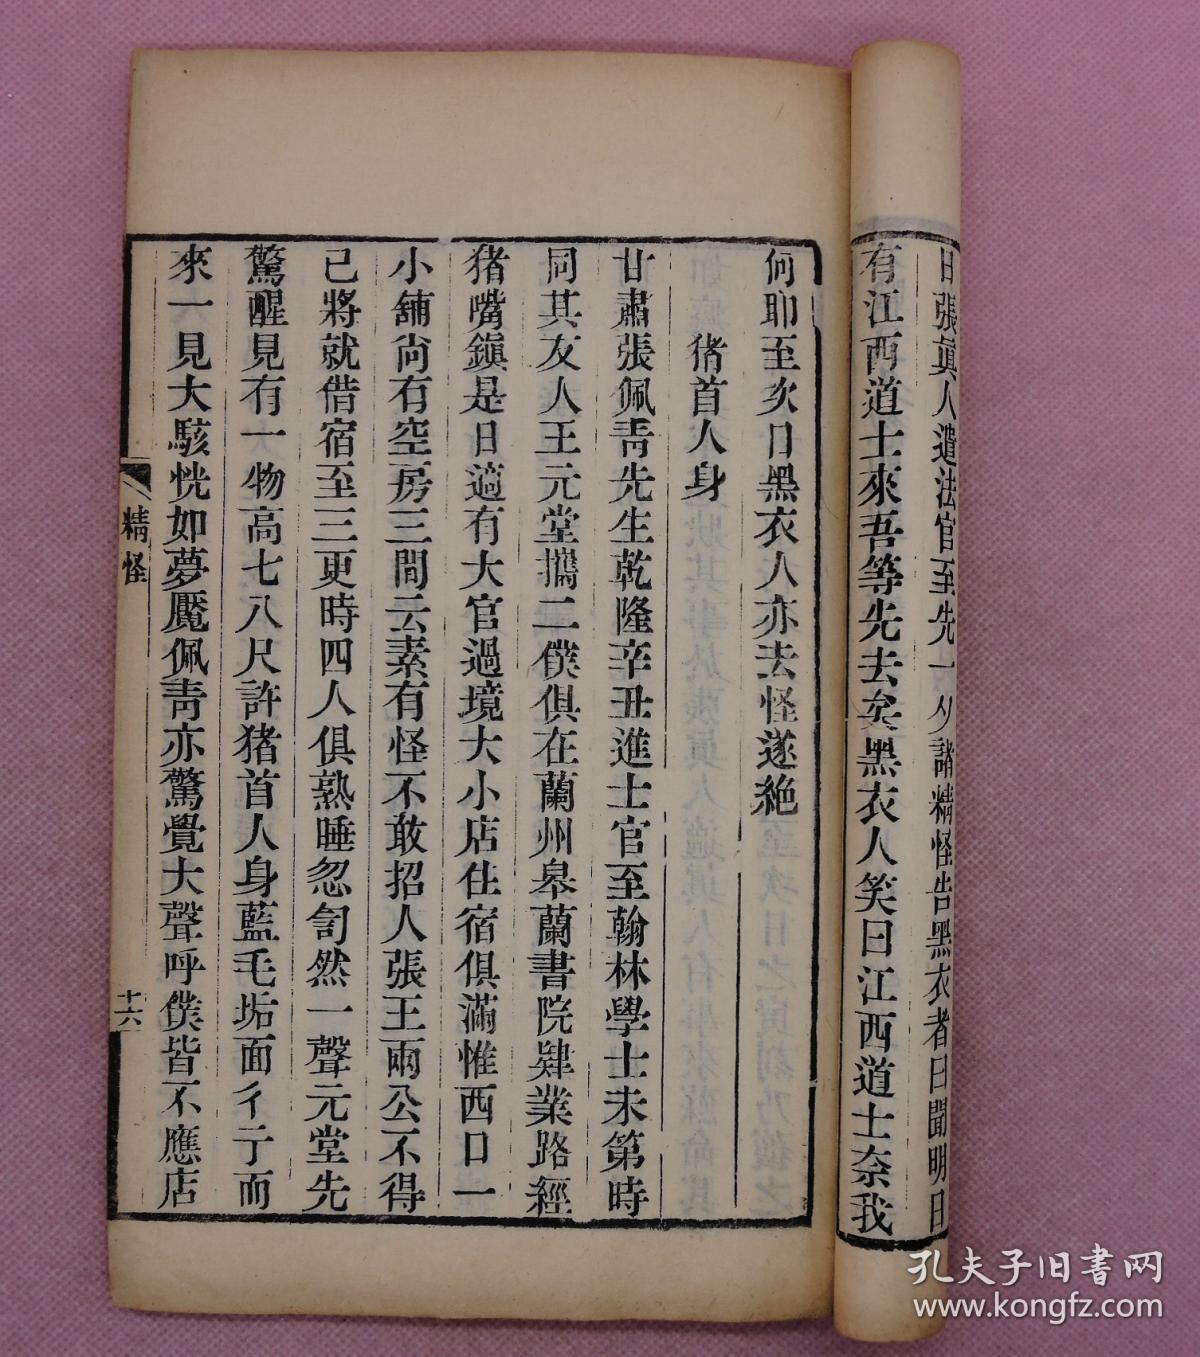 日張眞人遣法官至先一夕諸精怪告黑衣者曰聞明日
有江西道士來吾等先去矣黑衣人笑曰江西道士奈我
何耶至次日黑衣人亦去怪遂絶
猪首人身
甘肅張佩靑先生乾隆辛丑進士官至翰林學士未第時
同其友人王元堂攜二僕俱在蘭州皋蘭書院肄業路經
猪嘴鎭是日適有大官過境大小店住宿俱滿惟西口一
小舖尙有空房三間云素有怪不敢招人張王兩公不得
已將就借宿至三更時四人俱熟睡忽訇然一聲元堂先
驚醒見有一物高七八尺許猪首人身藍毛垢面彳亍而
來一見大駭恍如夢魘佩靑亦驚覺大聲呼僕皆不應店
精怪
十六
孔夫子旧书网
www.kongfz.com